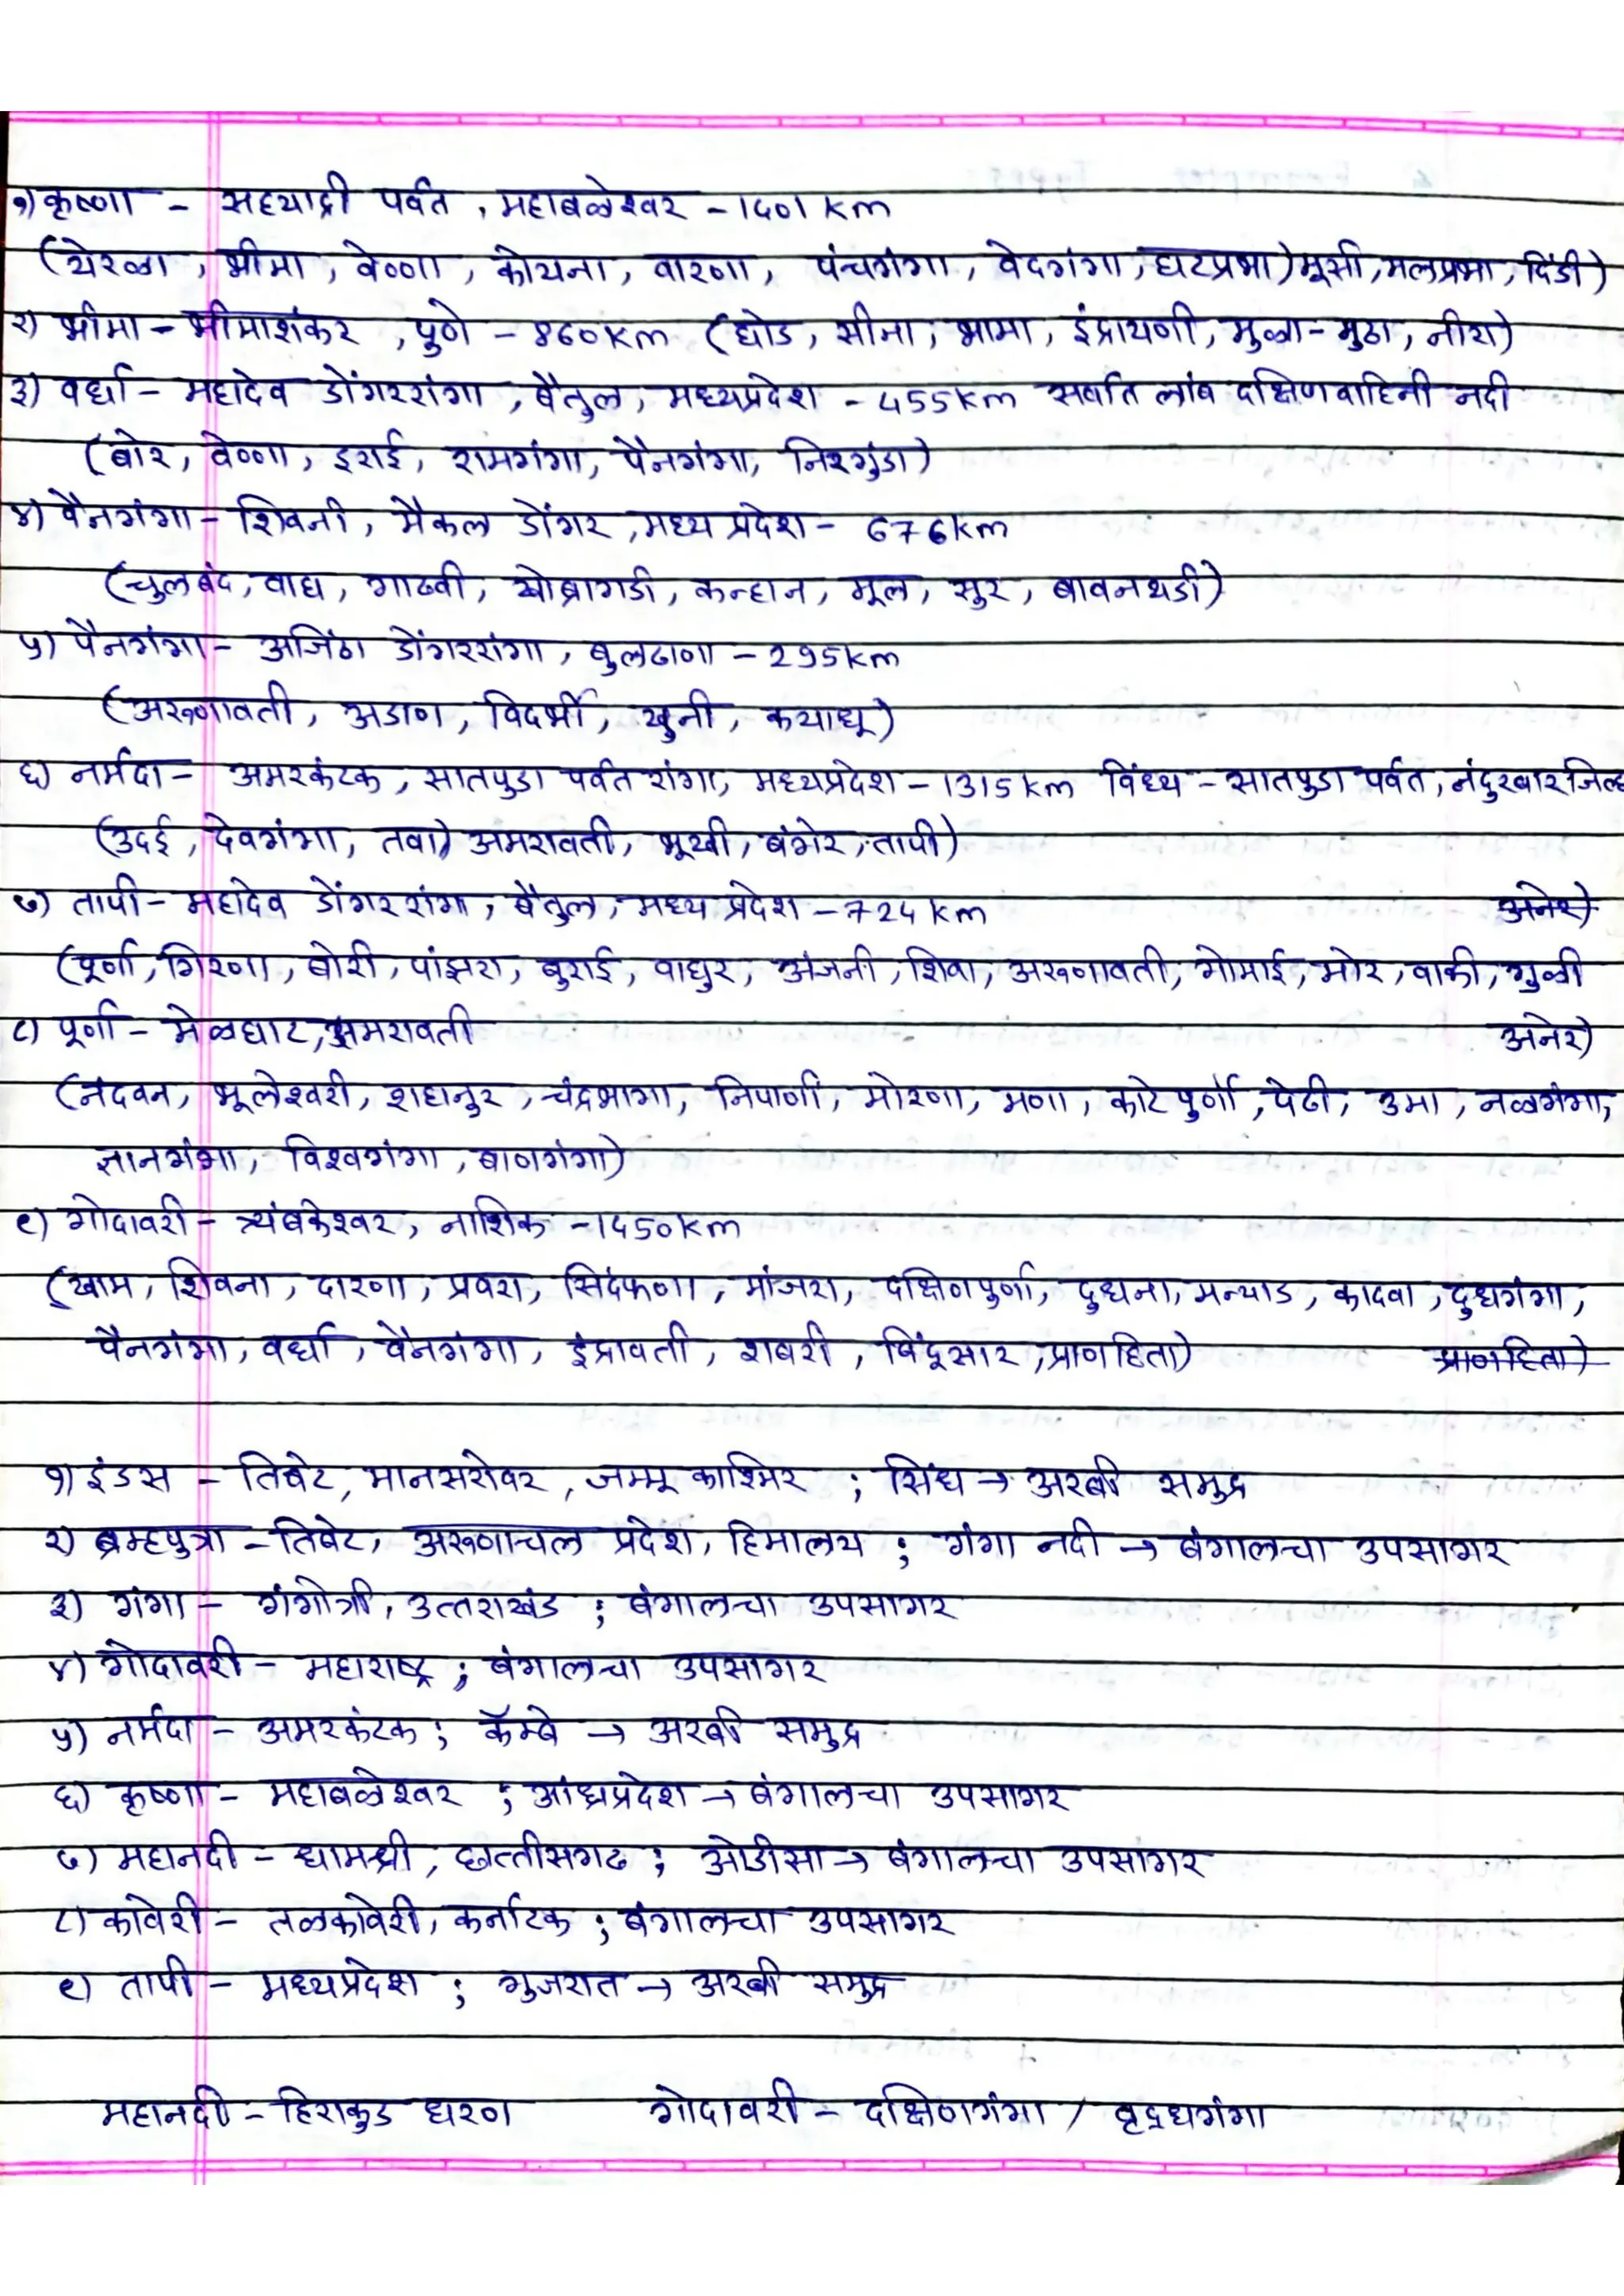 १) कृष्णा - सह्याद्री पर्वत, महाबळेश्वर - 1401 km
(येरळा, भीमा, वेण्णा, कोयना, वारणा, पंचगंगा, वेदगंगा, घटप्रभा) मूसी, मलप्रभा, दिंडी)
२) भीमा - भीमाशंकर, पुणे - 860km (घोड, सीना, भामा, इंद्रायणी, मुळा-मुठा, नीरा)
३) वर्धा - महादेव डोंगररांगा, बैतुल, मध्यप्रदेश - 455km सर्वात लांब दक्षिणवाहिनी नदी
(बोर, वेण्णा, इराई, रामगंगा, पैनगंगा, निरगुंडा)
४) वैनगंगा - शिवनी, मैकल डोंगर, मध्य प्रदेश - 676km
(चुलबंद, वाघ, गाढवी, खोब्रागडी, कन्हान, मूल, सुर, बावनथडी)
५) पैनगंगा - अजिंठा डोंगररांगा, बुलढाणा - 295km
(अरूणावती, अडाण, विदर्भा, खुनी, कयाधू)
६) नर्मदा - अमरकंटक, सातपुडा पर्वत रांगा, मध्यप्रदेश - 1315km विंध्य - सातपुडा पर्वत, नंदुरबार जिल्ह
(उदई, देवगंगा, तवा) अमरावती, भूखी, बंगेर, तापी)
७) तापी - महादेव डोंगर रांगा, बैतुल, मध्य प्रदेश - 724 km अनेर)
(पूर्णा, गिरणा, बोरी, पांझरा, बुराई, वाघुर, अंजनी, शिवा, अरूणावती, गोमाई, मोर, वाकी, गुळी
८) पूर्णा - मेळघाट, अमरावती अनेर)
(नंदवन, भूलेश्वरी, शहानुर, चंद्रभागा, निपाणी, मोरणा, मणा, काटेपुर्णा, पेढी, उमा, नळगंगा,
ज्ञानगंगा, विश्वगंगा, बाणगंगा)
९) गोदावरी - त्र्यंबकेश्वर, नाशिक - 1450km
(खाम, शिवना, दारणा, प्रवरा, सिदंफणा, मांजरा, दक्षिणपुर्णा, दुधना, मन्याड, कादवा, दुधगंगा,
पैनगंगा, वर्धा, वैनगंगा, इंद्रावती, शबरी, बिंदूसार, प्राणहिता) प्राणहिता)
१) इंडस - तिबेट, मानसरोवर, जम्मू काश्मिर ; सिंध → अरबी समुद्र
२) ब्रम्हपुत्रा - तिबेट, अरूणाचल प्रदेश, हिमालय ; गंगा नदी → बंगालचा उपसागर
३) गंगा - गंगोत्री, उत्तराखंड ; बंगालचा उपसागर
४) गोदावरी - महाराष्ट्र ; बंगालचा उपसागर
५) नर्मदा - अमरकंटक ; कॅम्बे → अरबी समुद्र
६) कृष्णा - महाबळेश्वर ; आंध्रप्रदेश → बंगालचा उपसागर
७) महानदी - धामश्री, छत्तीसगढ ; ओडीसा → बंगालचा उपसागर
८) कावेरी - तळकावेरी, कर्नाटक ; बंगालचा उपसागर
९) तापी - मध्यप्रदेश ; गुजरात → अरबी समुद्र
महानदी - हिराकुड धरण गोदावरी - दक्षिणगंगा / वृद्धगंगा